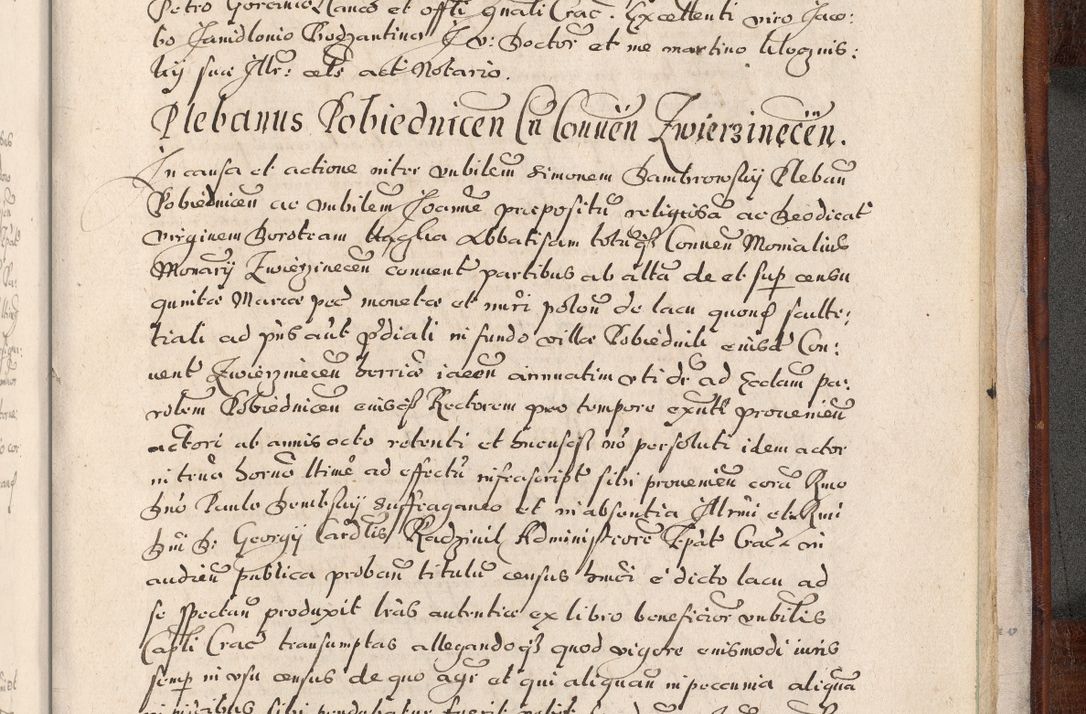 Petro Gorcinio Canco et offli gnali Crac. Excellenti viro Jaco:
bo Janidlonio Bodzantino J V: Doctor et me martino
sue Illr: cels acti Notario.
Plebanus Pobiednicen Cu Conuen Zwierzinecen.
In causa et actione inter vnbilem Simonem Dambrowskij Pleban
Pobiednicen ac vnbilem Joanne præpositu religiosa ac Deodicat
virginem Doroteam Abbatisam totuqȝ Conuen Monialiu
Monarij Zwierzinecen conuent partibus ab alta de et sup censu
quinta Marcæ pec monetæ et nuri polon de lacu quond sculte:
tiali ad pns aut pdiali in fundo villæ Pobiednik eiusd Con:
uent Zwierzinecen terris iacen annuatim vti dr ad Ecclam pa:
rolem Pobiednicen eiusqȝ Rectorem pro tempore exnte prouenien
actori ab annis octo retenti et no persoluti idem actor
in ten horno ltime ad effectu infrascript sibi prouenien cora Rmo
Dno Paulo Dembskij Suffraganeo et in absentia Illrmi et Rmi
Dni D: Georgij Cardlis Radziuil Administrore Epat Crac in
audien publica proban titulu census e dicto lacu ad
se spectan produxit lras autentice ex libro beneficior vnbilis
Capli Crac transumptas allegandoqȝ quod vigore eiusmodi iuris
semp in vsu census de quo agr et qui aliquan in peccunia aliqua